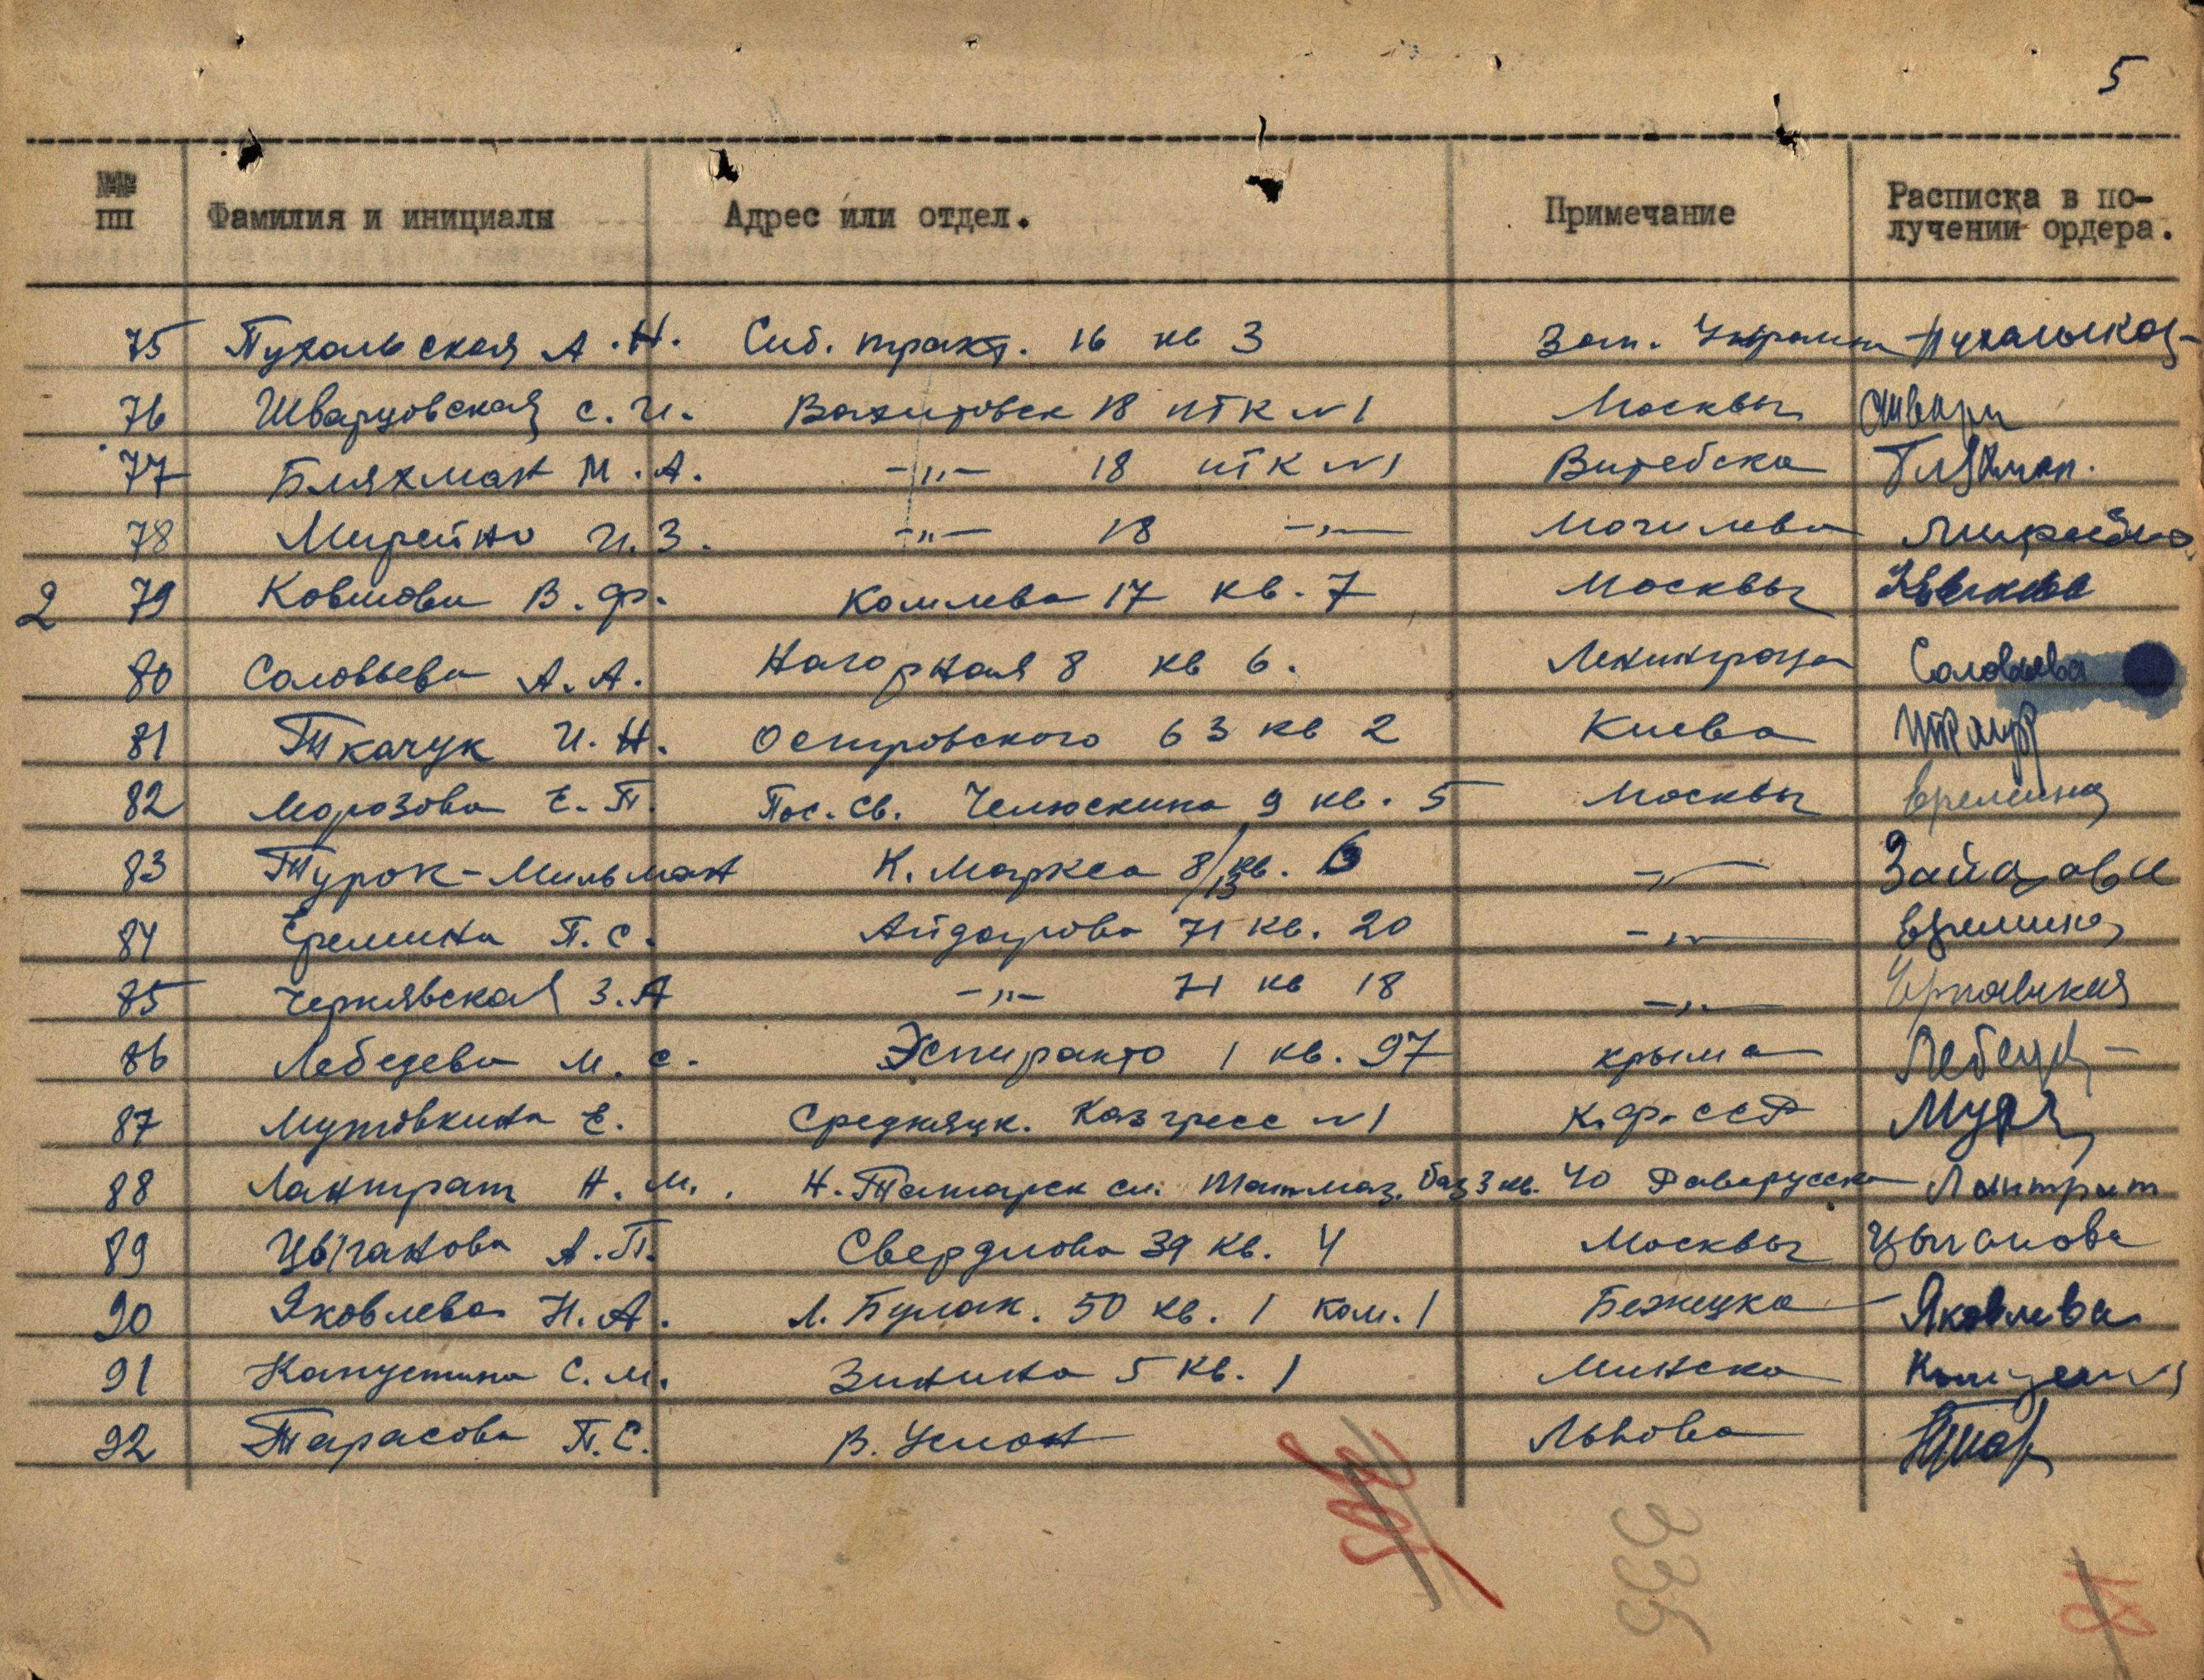 5
№№ пп Фамилия и инициалы Адрес или отдел. Примечание Расписка в по- лучении ордера.
75 Пухальская А.Н. Сиб. тракт. 16 кв 3 Зап. Украины Пухальская
76 Шварцовская С.И. Вахитовск 18 ИТК N1 Москвы Шварц
77 Бляхман М.А. -„- 18 ИТК N1 Витебска Бляхман.
78 Мирейно И.З. -„- 18 -„- Могилева Мирейно
79 Ковшова В.Ф. Комлева 17 кв. 7 Москвы
2
80 Соловьева А.А. Нагорная 8 кв 6. Ленинграда Соловьева
81 Ткачук И.Н. Островского 63 кв 2 Киева
82 Морозова Е.П. Пос. Св. Челюскина 9 кв. 5 Москвы Еремина
83 Турок-Мильман К. Маркса 8/13 кв. 6 -„-
84 Еремина П.С. Айдарова 71 кв. 20 -„- Еремина
85 Чернявская З.А -„- 71 кв 18 -„- Чернявская
86 Лебедева М.С. Эсперанто 1 кв. 97 Крыма Лебед
87 Мутовкина Е. Средняцк. Казгресс N1 К.Ф.ССР
88 Лантрат Н.М. Н. Татарск сл. Татмаз. баз 3 кв. 40 Раварусска Лантрат
89 Цыганова А.П. Свердлова 39 кв. 4 Москвы Цыганова
90 Яковлева Н.А. Л. Булак. 50 кв. 1 ком. 1 Бежецка Яковлева
91 Капустина С.М. Зинина 5 кв. 1 Минска
92 Тарасова П.С. В. Услон Львова
335
18